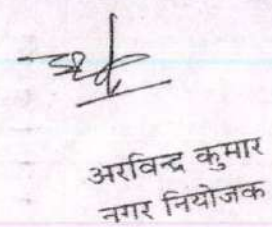 अरविन्द कुमार
नगर नियोजक